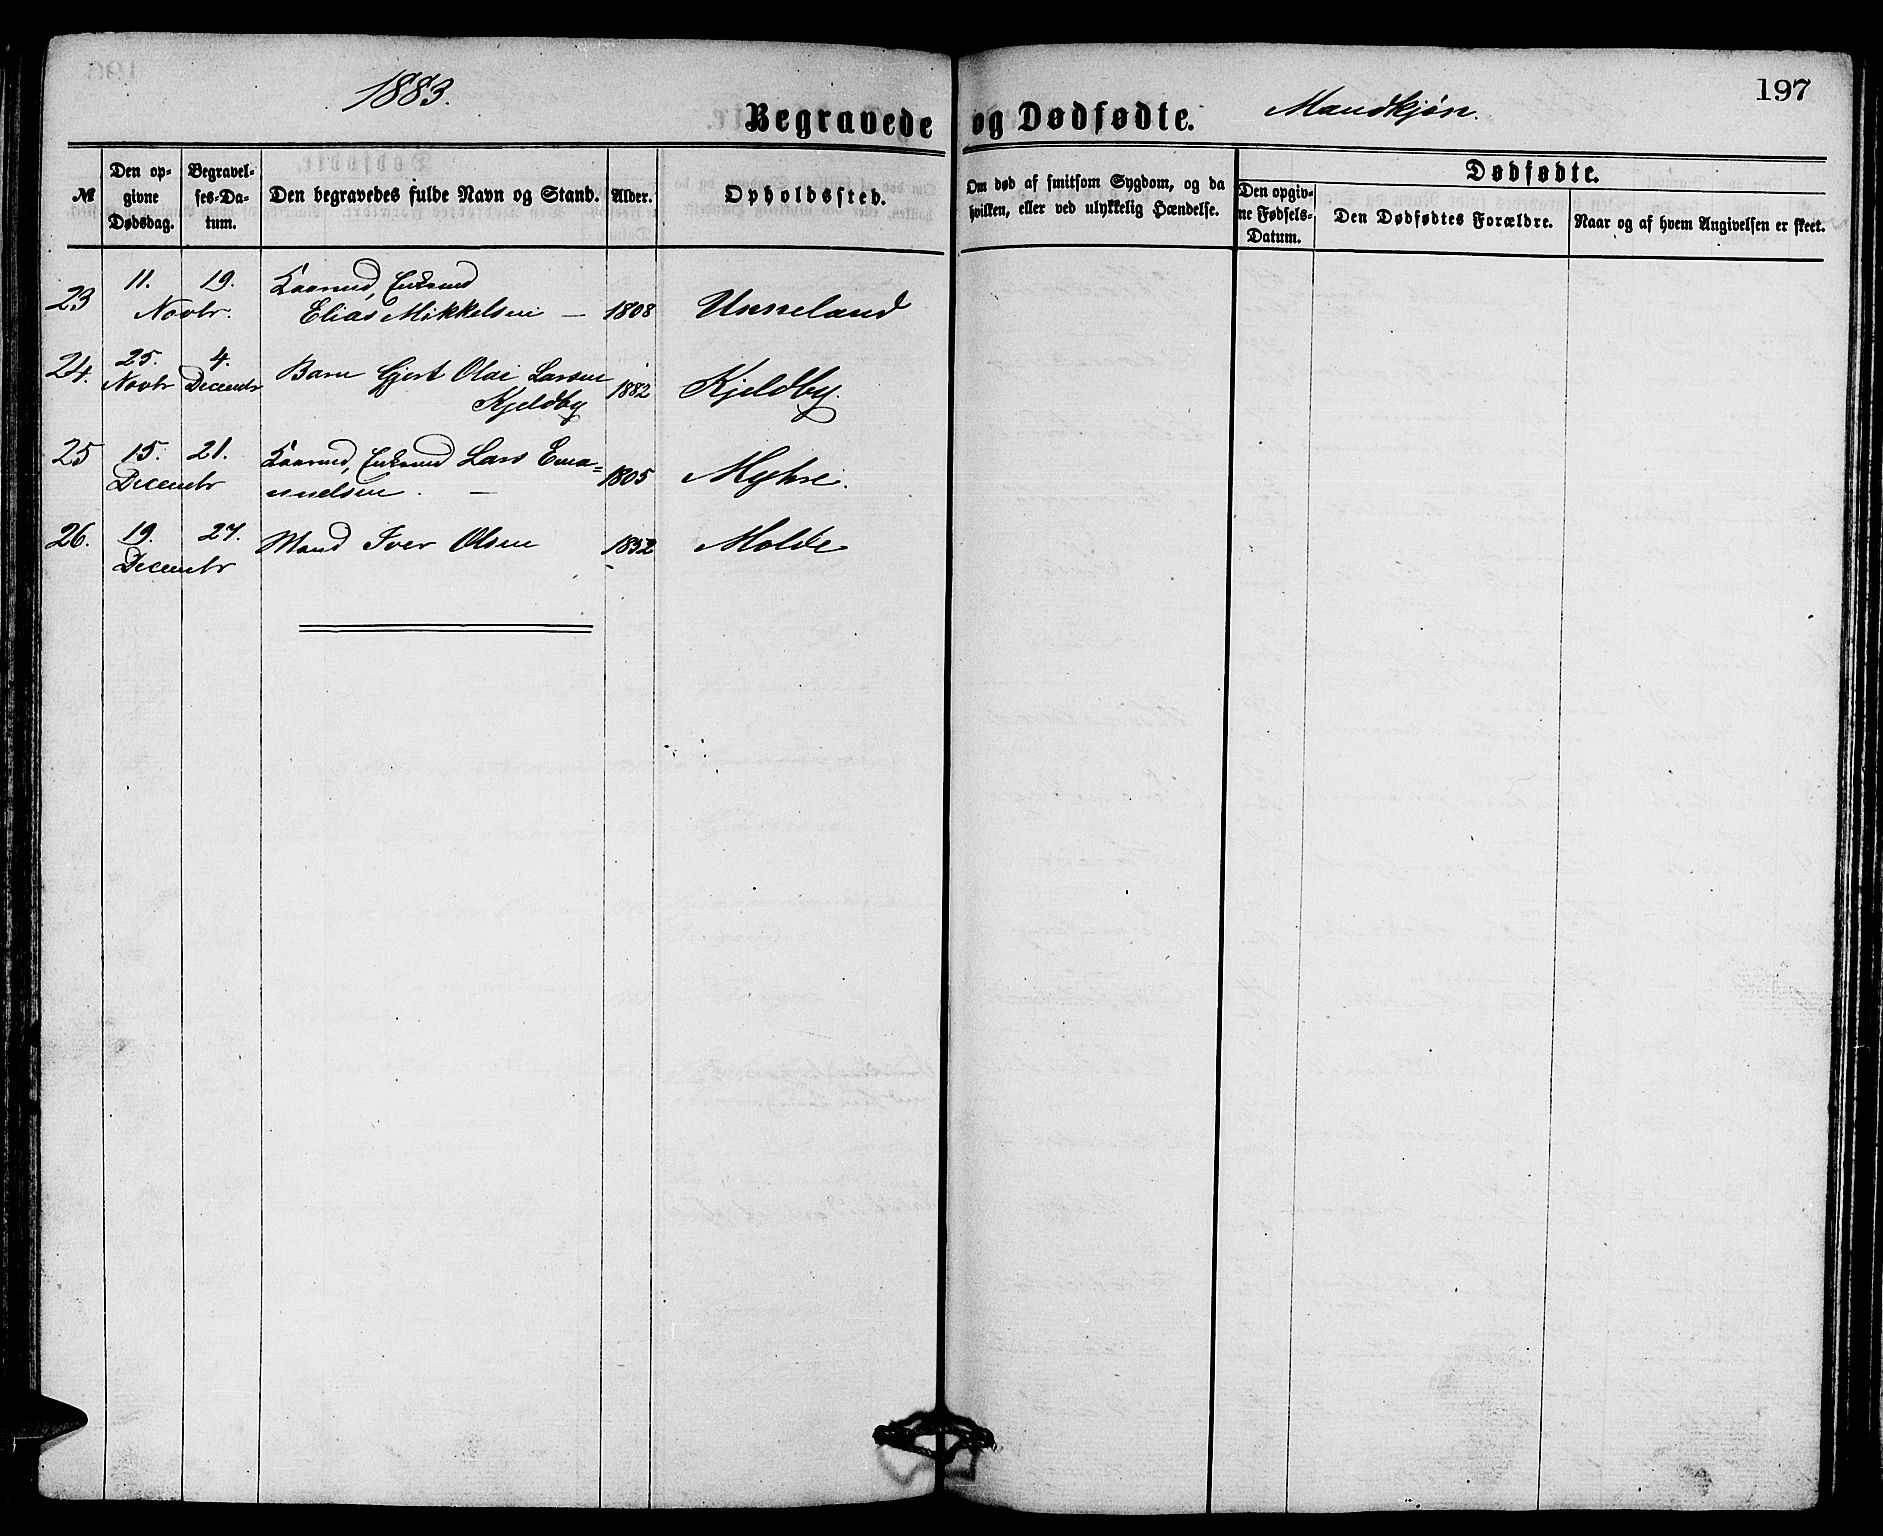 1883.
Begravede og Dødfødte.
Mandkjøn.
197
№
Den opgivne Dødsdag.
Begravelses-Datum.
Den begravedes fulde Navn og Stand.
Alder.
Opholdssted.
Om død af smitsom Sygdom, og da
hvilken, eller ved ulykkelig Hændelse.
Dødfødte.
Den opgivne Fødsels-Datum.
Den Dødfødtes Forældre.
Naar og af hvem Angivelsen er skeet.
23 11. 19. Kaarmd, Enkemd
Novbr. Elias Mikkelsen — 1808 Unneland
24. 25. Novbr 4. Decembr Barn Gjert Olai Larsen 1882 Kjeldby.
Kjeldby
25 15. 21. Kaarmd, Enkemd Lars Ema=
Decembr nuelsen. — 1805 Myhre.
26. 19. 27. Mand Iver Olsen 1832 Molde
Decembr